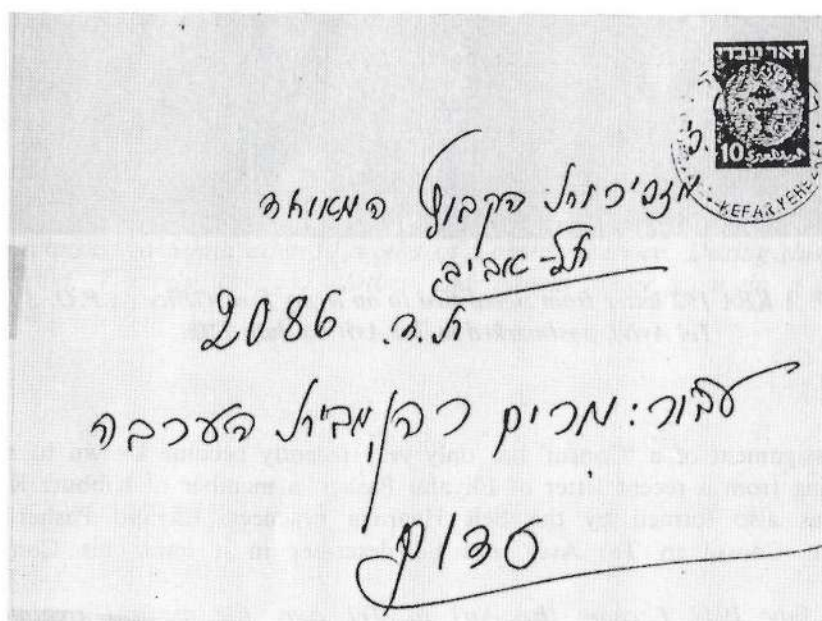 דאר עברי
10
KEFAR YEHEZQEL
מזכירות הקבוץ המאוחד
תל-אביב
ת.ד. 2086
עבור: מרים כהן מבית הערבה
סדום